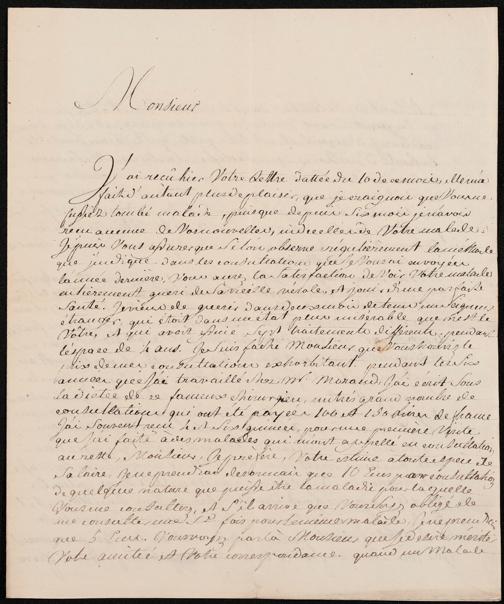 Monsieur
J'ai reçû hier Votre Lettre dattée du 10 de ce mois, Elle m'a
fait d'autant plus de plaisir, que je craignois que Vous ne
fussiez tombé malade, puisque depuis six mois je n'avois
reçu aucune de Vos nouvelles, ni de celles de Votre malade.
Je puis Vous assurer que si l'on observe régulièrement la méthode
que j'indique dans les consultations que je Vous ai envoyées
l'année dernière, Vous aurez la Satisfaction de Voir Votre malade
entièrement guéri de sa vérole, et jouir d'une parfaite
Santé. Je viens de guerir dans deux mois de tems un Seigneur
étranger, qui étoit dans un état plus misérable que n'est le
Vôtre, et qui avoit Sept traitements différents, pendant
l'espace de 4 ans. Je suis faché Monsieur que Vous trouviez le
prix de mes consultations exhorbitant. pendant les six
années que j'ai travaillé chez Mr. Morand, j'ai écrit Sous
la dictée de ce fameux chirurgien, un très grand nombre de
consultations qui ont été payées 100 et 150 livres de france
J'ai Souvent reçu 4 et 5 guinées, pour une première Visite
que j'ai faite à des malades qui m'ont appellé en consultation,
au reste, Monsieur, je prefère, Votre estime à toute espèce de
Salaire. Je ne prendrai désormais que 10 Ecus par consultation
de quelque nature que puisse être la maladie pour laquelle
Vous me consultiez, et s'il arrive que Vous soyez obligé de
me consulter une 2de fois pour le même malade, je ne prendrai
que 5 Ecus. Vous voyez par là Monsieur que je désire mériter
Votre amitié et Votre correspondance. quand un Malade